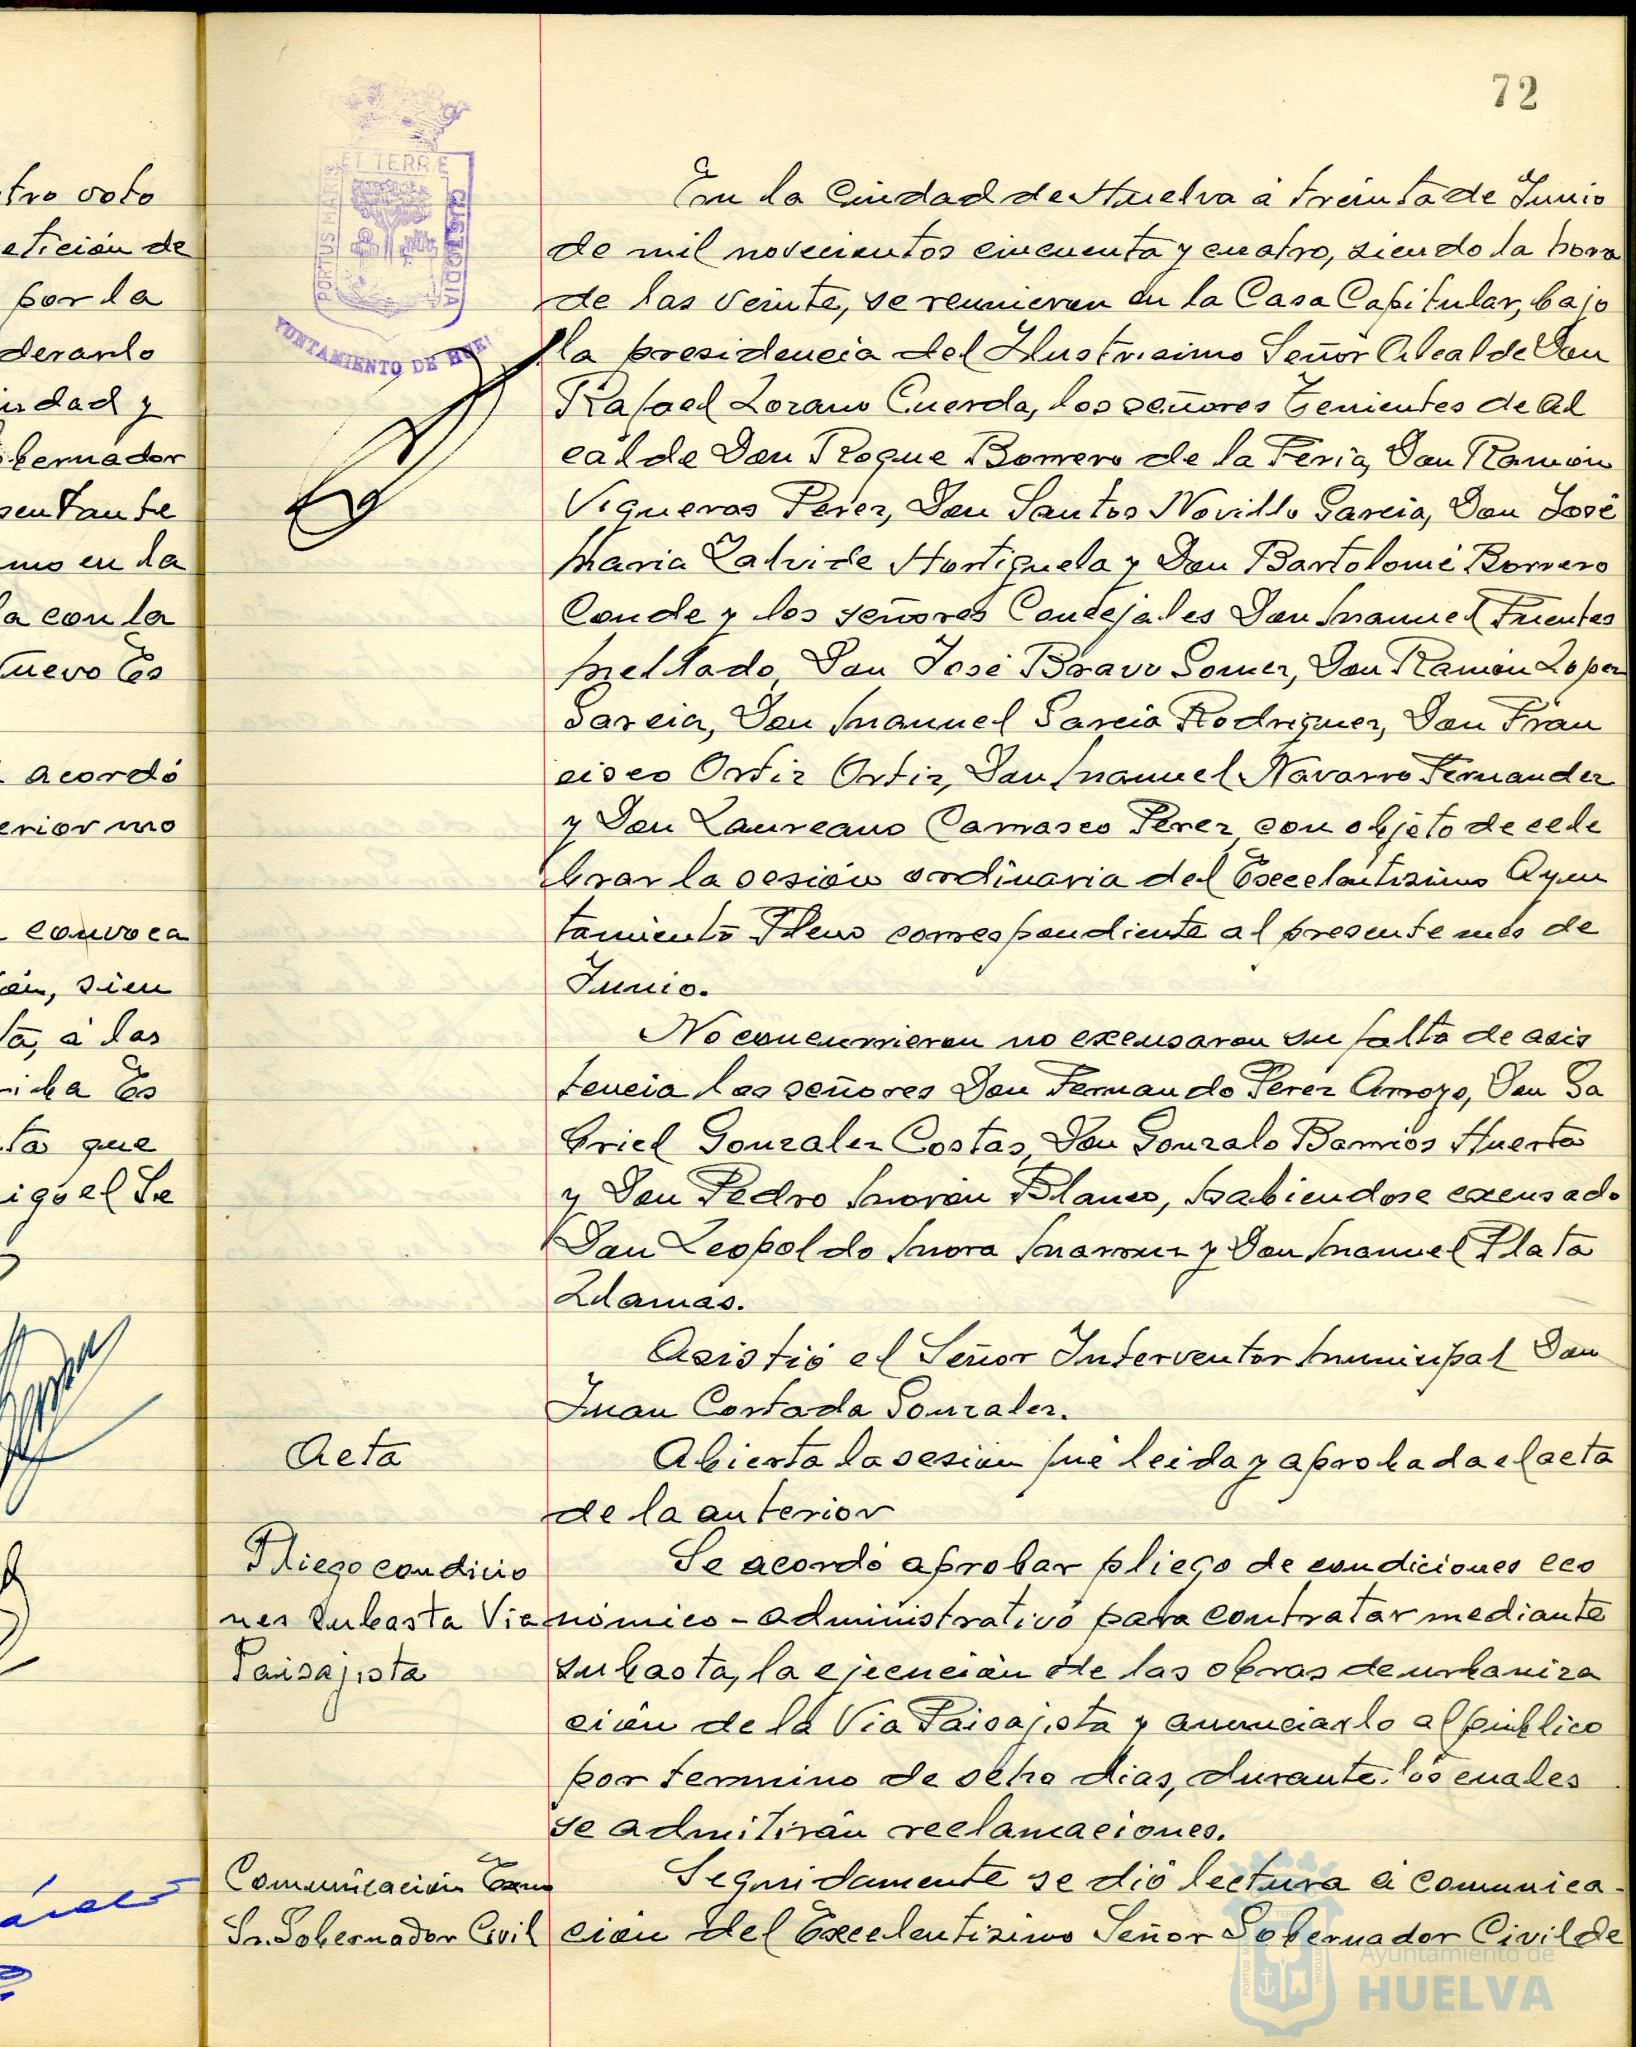 72
tro voto
etición de
por la
derarlo
udad y
bernador
sentante
mo en la
la con la
Nuevo Es
acordó
erior mo
convoca
ón, sien
tá, á las
rida Es
ta que
iguel Se
PORTUS MARIS
ET TERRE
CUSTODIA
YUNTAMIENTO DE HUE
En la Ciudad de Huelva á treinta de Junio
de mil novecientos cincuenta y cuatro, siendo la hora
de las veinte, se reunieron en la Casa Capitular, bajo
la presidencia del Ilustrisimo Señor Alcalde Don
Rafael Lozano Cuerda, los señores Tenientes de Al
calde Don Roque Borrero de la Feria, Don Ramón
Vigueras Perez, Don Santos Novillo Garcia, Don José
Maria Zalvide Hortiguela y Don Bartolomé Borrero
Conde y los señores Concejales Don Manuel Fuentes
Mellado, Don José Bravo Gomez, Don Ramón Lopez
Garcia, Don Manuel Garcia Rodriguez, Don Fran
cisco Ortiz Ortiz, Don Manuel Navarro Fernandez
y Don Laureano Carrasco Perez, con objeto de cele
brar la sesión ordinaria del Excelentisimo Ayun
tamiento Pleno correspondiente al presente mes de
Junio.
No concurrieron no excusaron su falta de asis
tencia los señores Don Fernando Perez Arroyo, Don Ga
briel Gonzalez Costas, Don Gonzalo Barrios Huerta
y Don Pedro Morón Blanco, habiendose excusado
Don Leopoldo Mora Marouz y Don Manuel Plata
Llamas.
Asistió el Señor Interventor Municipal Don
Juan Cortada Gonzalez.
Acta
Abierta la sesión fué leida y aprobada el acta
de la anterior
Pliego condicio
nes subasta Via
Paisajista
Se acordó aprobar pliego de condiciones eco
nómico-administrativo para contratar mediante
subasta, la ejecución de las obras de urbaniza
ción de la Via Paisajista y anunciarlo al público
por termino de ocho dias, durante los cuales
se admitirán reclamaciones.
Comunicación Excmo
Sr. Gobernador Civil
Seguidamente se dió lectura á comunica-
ción del Excelentisimo Señor Gobernador Civil de
Ayuntamiento de
HUELVA